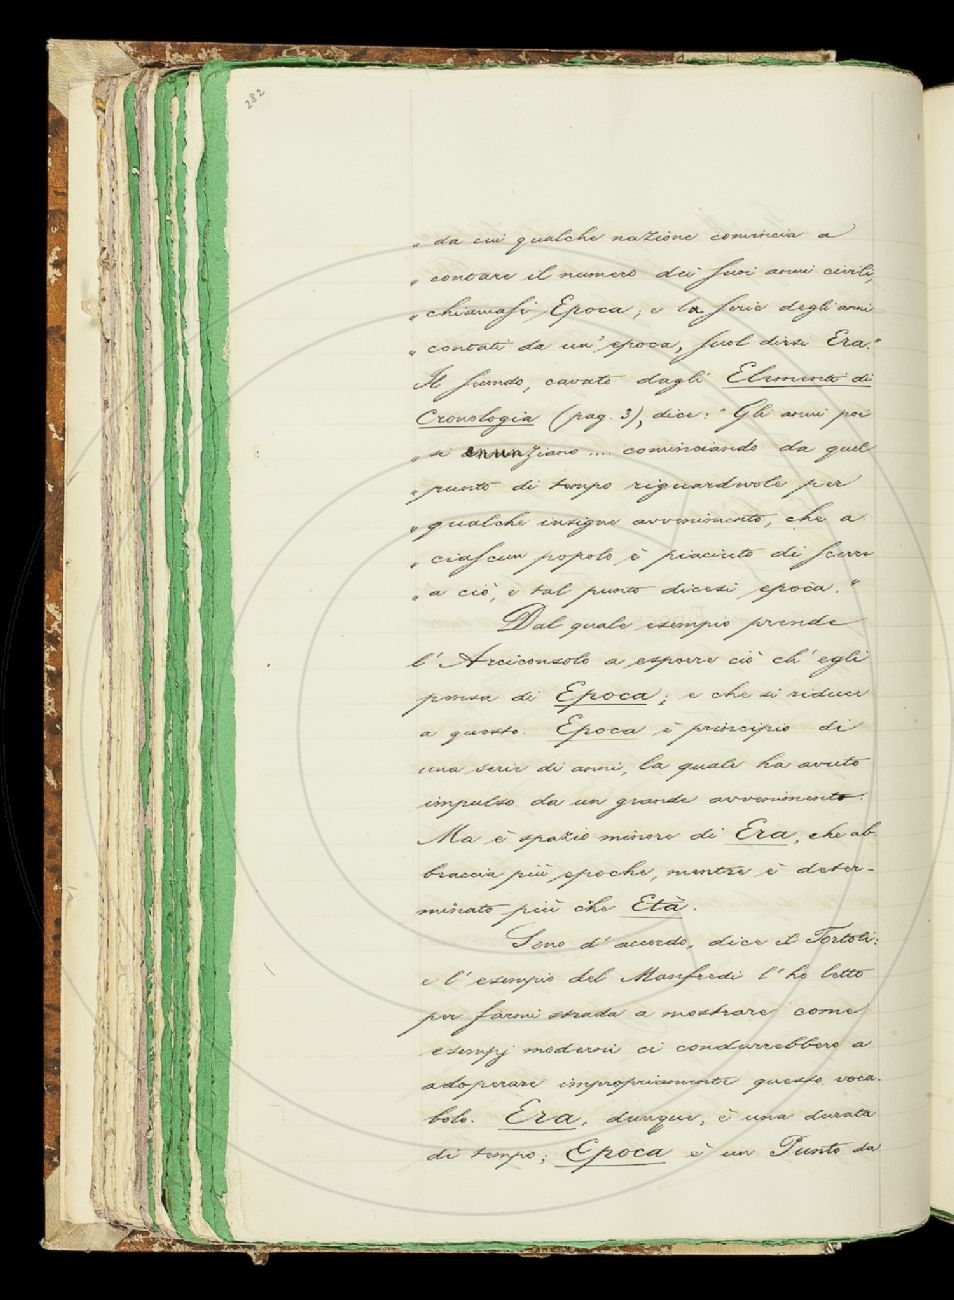 282
„ da cui qualche nazione comincia a
„ contare il numero dei suoi anni civili,
„ chiamasi Epoca; e la serie degli anni
„ contati da un' epoca, suol dirsi Era."
Il secondo, cavato dagli Elementi di
Cronologia (pag. 3), dice: " Gli anni poi
„ si enunziano .... cominciando da quel
„ punto di tempo riguardevole per
„ qualche insigne avvenimento, che a
„ ciascun popolo è piaciuto di
„ a ciò, e tal punto dicesi epoca."
Dal quale esempio prende
l' Arciconsolo a esporre ciò ch' egli
pensa di Epoca; e che si riduce
a questo. Epoca è principio di
una serie di anni, la quale ha avuto
impulso da un grande avvenimento.
Ma è spazio minore di Era, che ab-
braccia più epoche, mentre è deter-
minato più che Età.
Sono d' accordo, dice il Tortoli:
e l' esempio del Manfredi l' ho letto
per farmi strada a mostrare come
esempj moderni ci condurrebbero a
adoperare impropriamente questo voca-
bolo. Era, dunque, è una durata
di tempo; Epoca è un Punto da